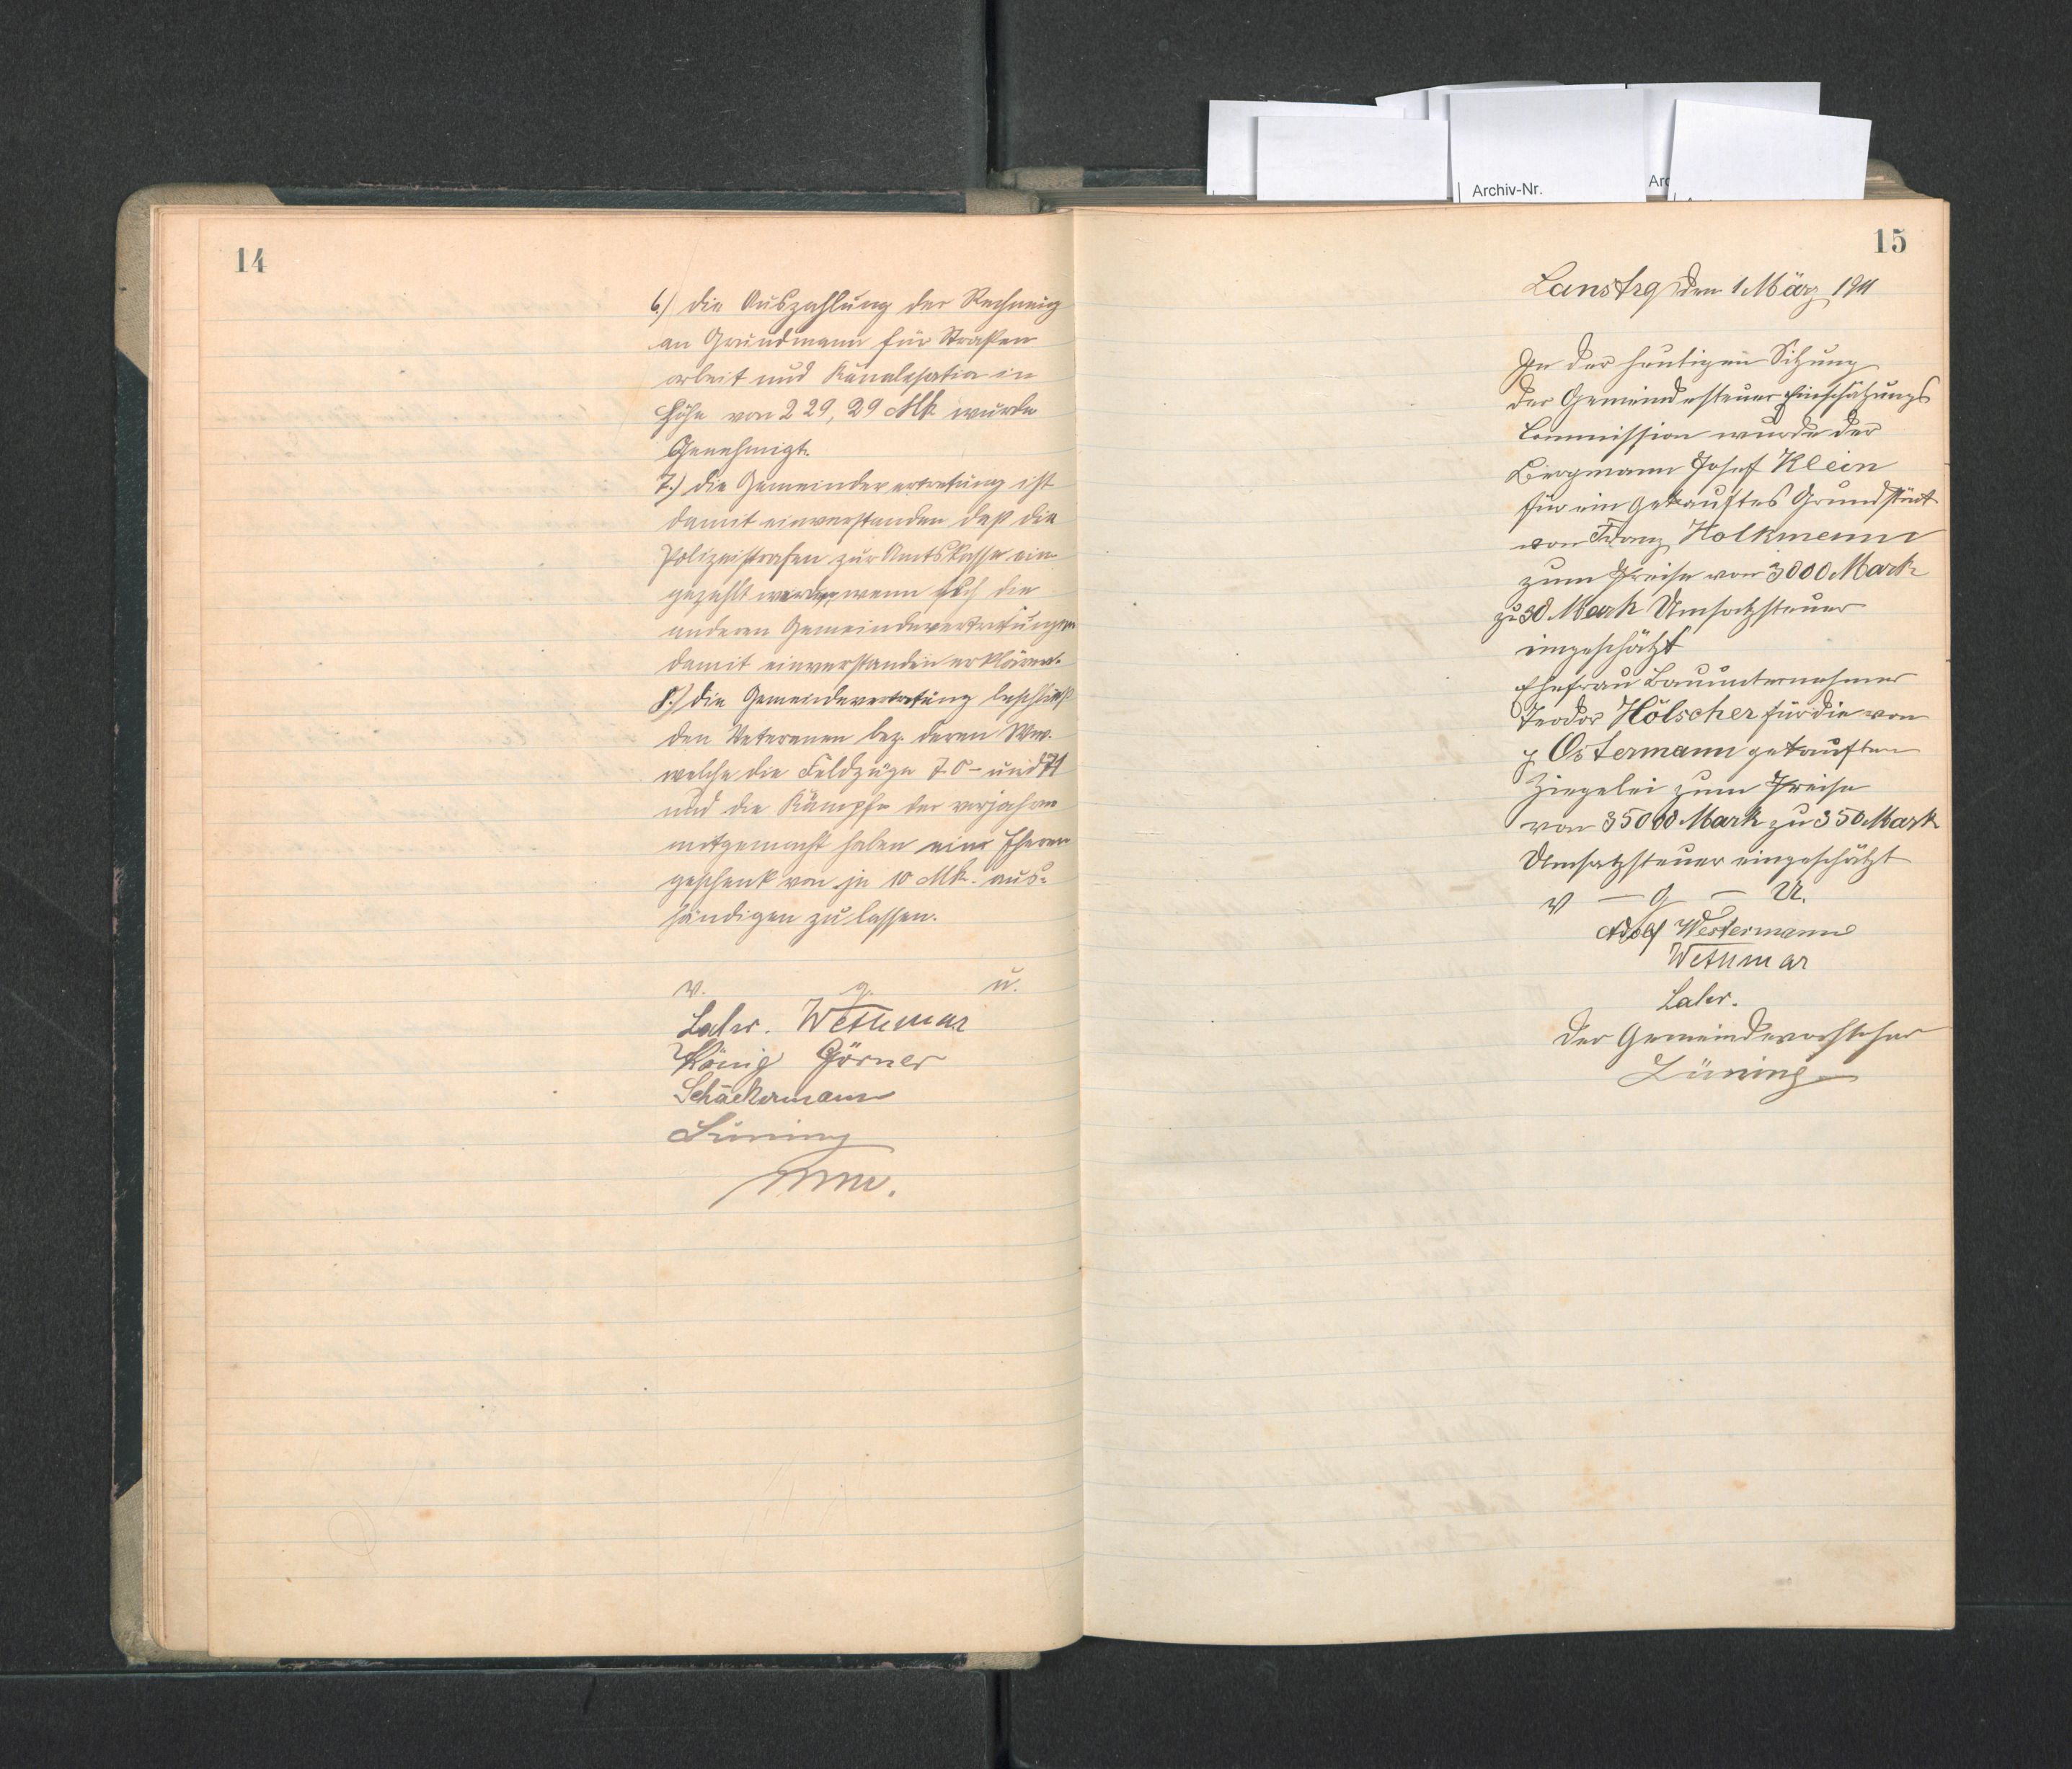 Archiv-Nr.
14
6.) die Auszahlung der Rechnung
an Grundmann für Straßen
arbeit und Kanalisation in
Höhe von 229,29 Mk wurde
Genehmigt.
7.) die Gemeindevertretung ist
damit einverstanden daß die
Polizeistrafen zur Amtskasse ein
gezahlt werden wenn sich die
anderen Gemeindevertretungen
damit einverstanden erklären.
8.) die Gemeindevertretung beschließt
den Veteranen bez. deren Wwe.
welche die Feldzüge 70 - und 71
und die Kämpfe der vorjahre
mitgemacht haben eine Ehren
geschenk von je 10 Mk. aus-
händigen zu lassen.
v. g. u.
Wethmar
König Görner
Schäckermann
Lüning
15
den 1 März 1911
In der heutigen Sitzung
der Gemeindesteuer Einschätzungs
Commission wurde der
Bergmann Josef Klein
für ein gekauftes Grundstück
von Franz Holkmann
zum Preise von 3000 Mark
zu 30 Mark Umsatzsteuer
eingeschätzt
Ehefrau Bauunternehmer
Teodor Hölscher für die von
Ostermann gekauften
Ziegelei zum Preise
von 35000 Mark zu 350 Mark
Umsatzsteuer eingeschätzt
v - g - U.
Adolf Westermann
Wethmar
der Gemeindevorsteher
Lüning